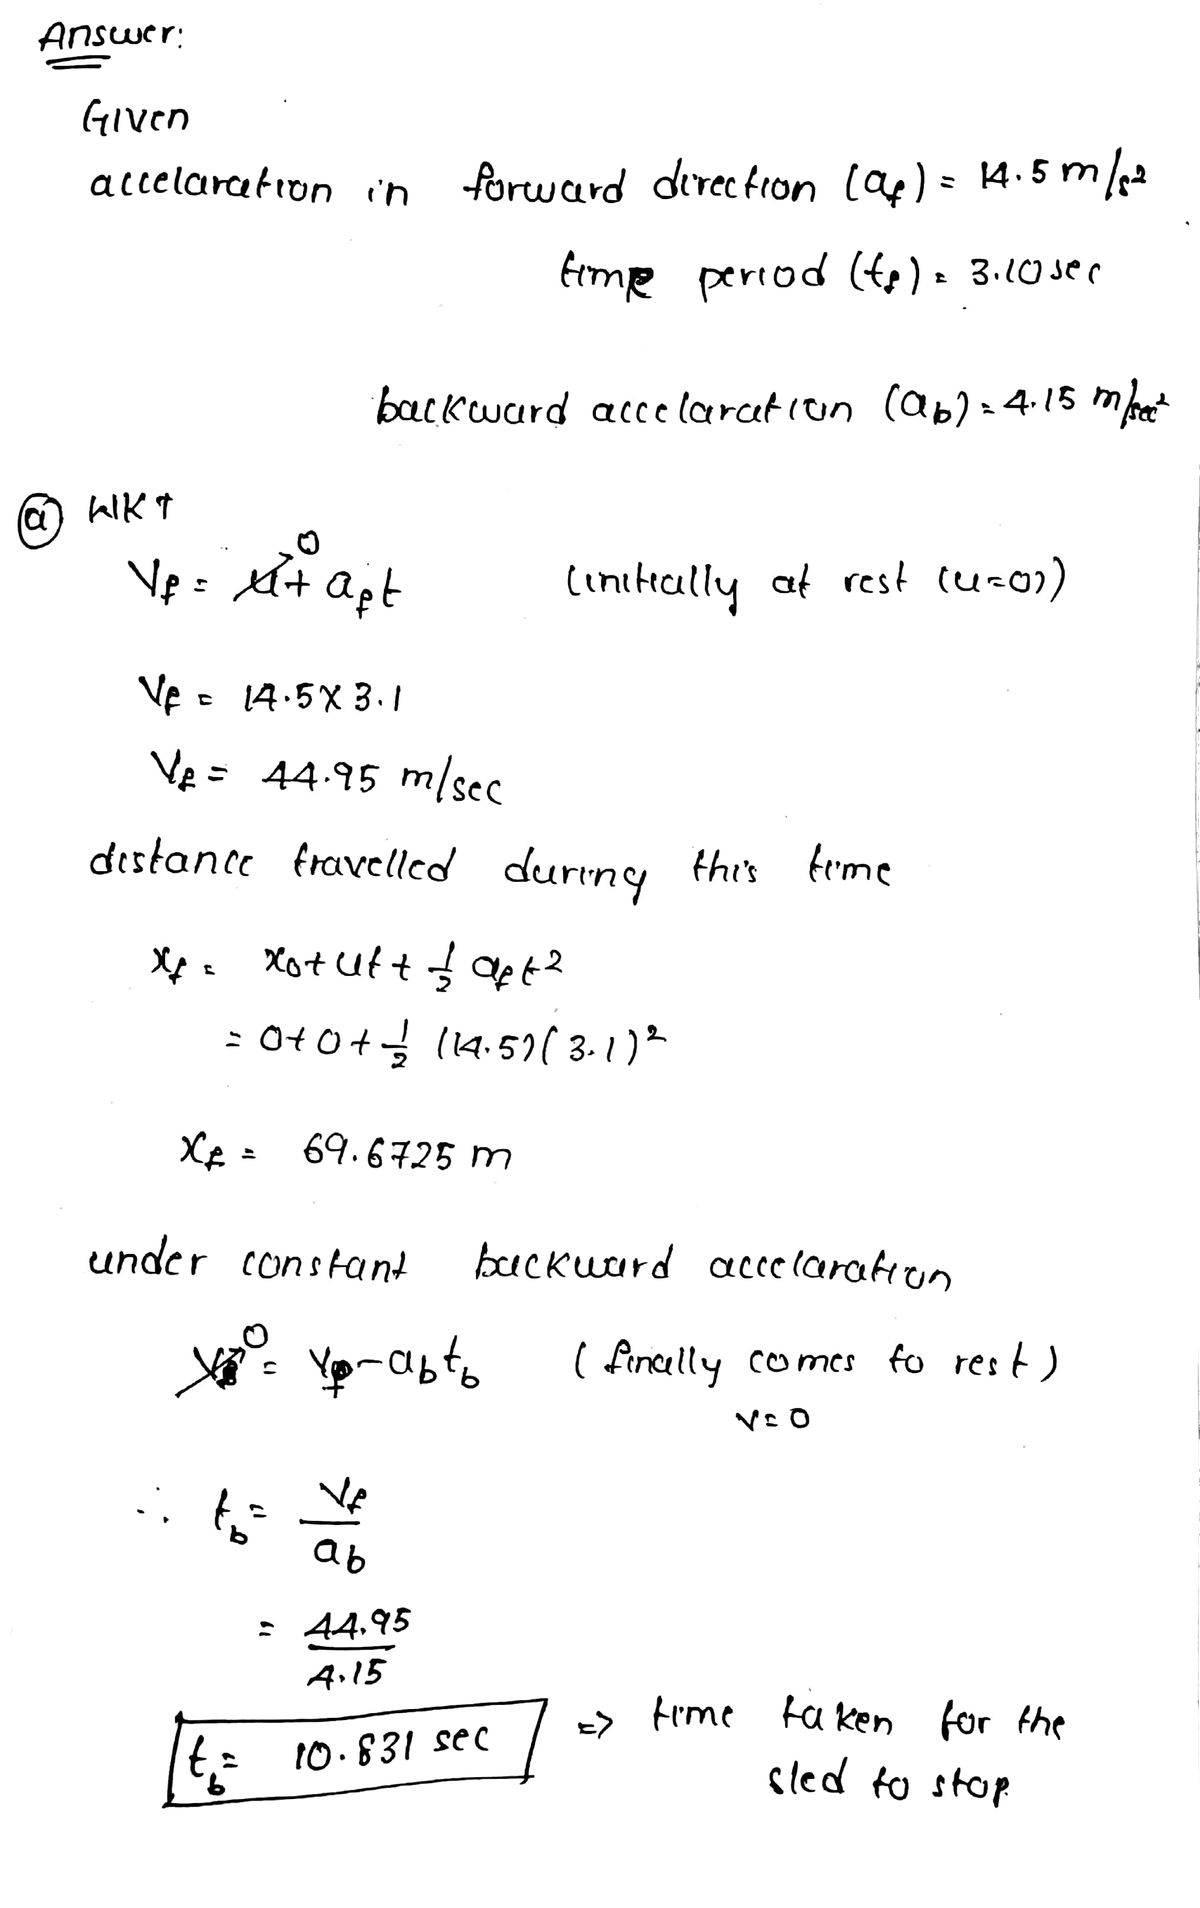 Answer:
Given
accelaration in forward direction (a_f) = 14.5 m/s²
time period (t_f) = 3.10 sec
backward accelaration (a_b) = 4.15 m/sec²
ⓐ WKT
V_f = u⁰ + a_f t (initially at rest (u=0))
V_f = 14.5 x 3.1
V_f = 44.95 m/sec
distance travelled during this time
x_f = x₀ + ut + 1/2 a_f t²
= 0 + 0 + 1/2 (14.5)(3.1)²
x_f = 69.6725 m
under constant backward accelaration
0 = V_f - a_b t_b (finally comes to rest)
v = 0
∴ t_b = V_f / a_b
= 44.95 / 4.15
t_b = 10.831 sec => time taken for the
sled to stop